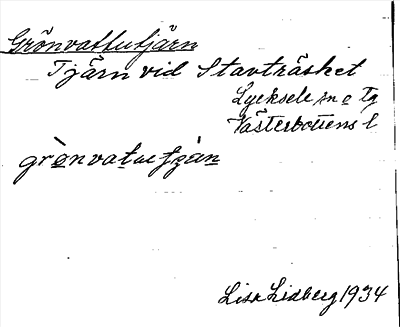 Grönvattutjärn
Tjärn vid Stavträsket
Lycksele sn o Tg
Västerbottens l
Lisa Lidberg 1934